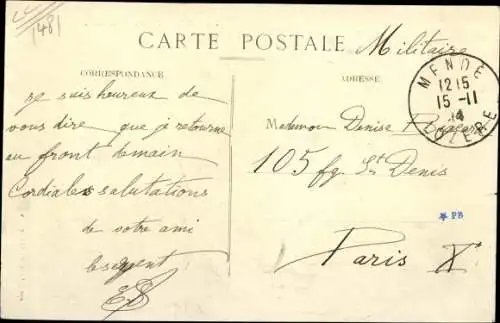 1481
CARTE POSTALE
Militaire
CORRESPONDANCE
ADRESSE
MENDE
12 15
15 -11
14
LOZERE
Je suis heureux de
vous dire que je retourne
au front demain
Cordiales salutations
de votre ami
le sergent
Denise
105 fg. St Denis
PB
Paris X